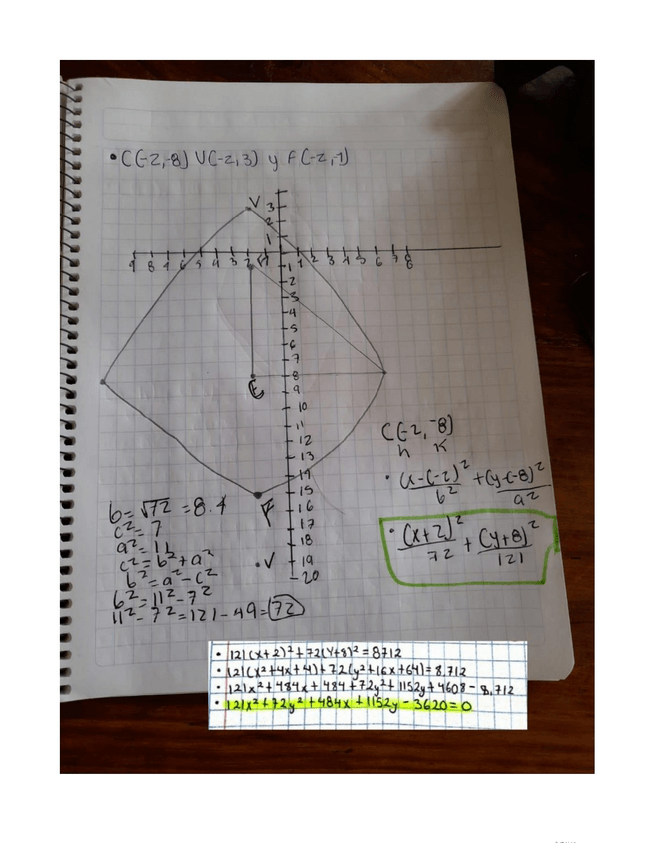 • C(-2,-8) V(-2,3) y F(-2,-1)
V
3
2
1
9 8 7 6 5 4 3 2 1 1 2 3 4 5 6 7 8
1
2
3
4
5
6
7
8
C
9
10
11
12
13
14
15
F
16
17
18
• V
19
20
C(-2,-8)
h k
• (x-(-2)² / b² + (y-(-8)² / a²
• (x+2)² / 72 + (y+8)² / 121
b = √72 = 8.4
c² = 7
a² = 11
c² = b² + a²
b² = a² - c²
b² = 11² - 7²
11² - 7² = 121 - 49 = 72
• 121(x+2)² + 72(y+8)² = 8712
• 121(x²+4x+4) + 72(y²+16x+64) = 8,712
• 121x² + 484x + 484 + 72y² + 1152y + 4608 - 8,712
• 121x² + 72y² + 484x + 1152y - 3620 = 0